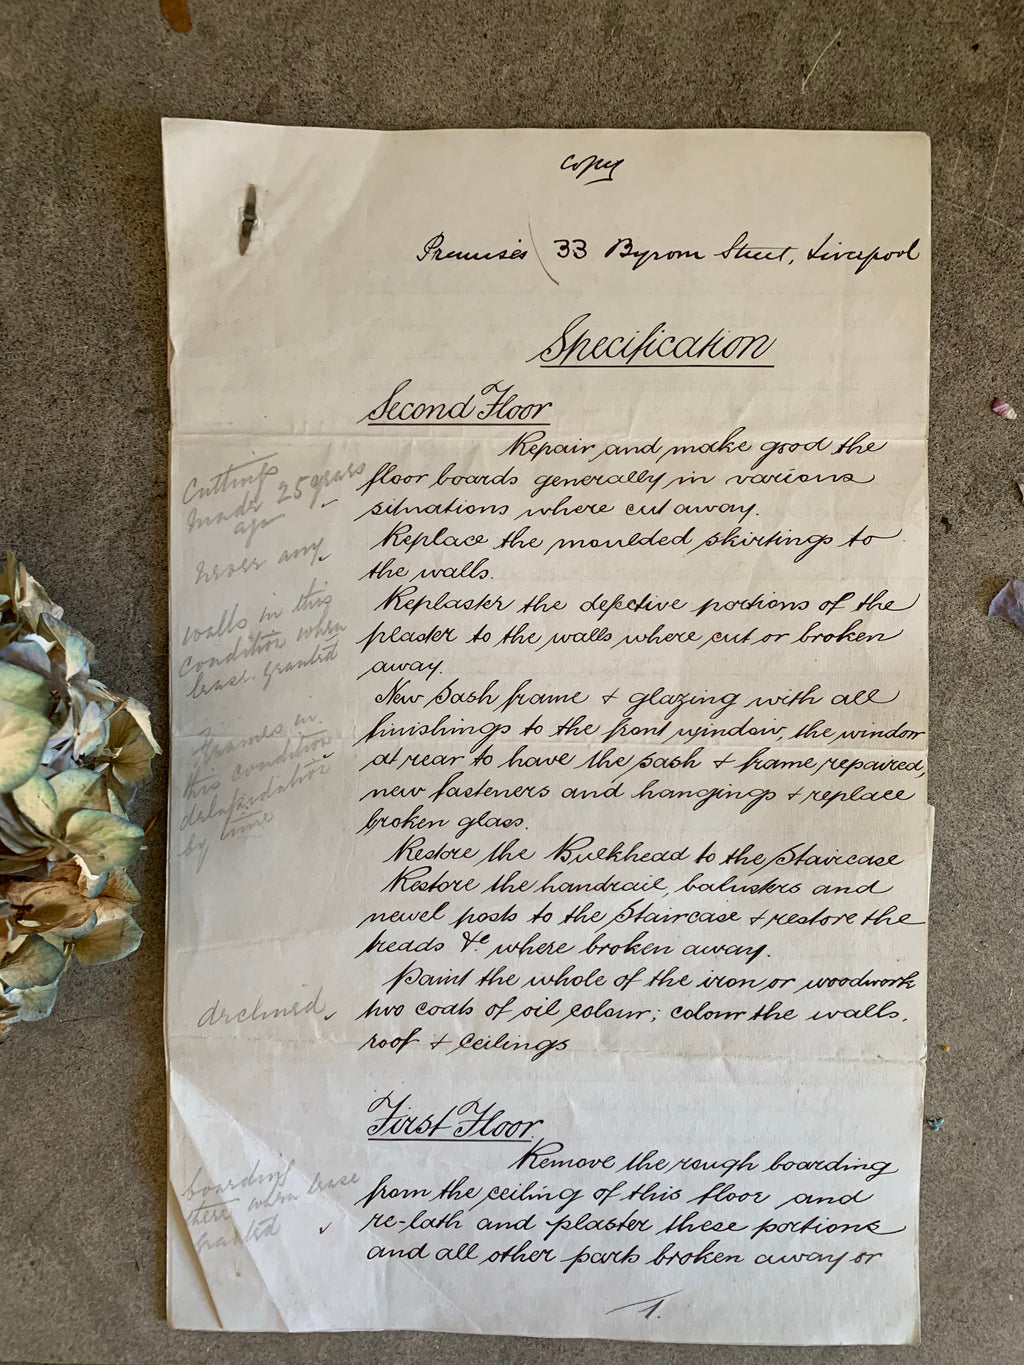 Copy
Premises 33 Byrom Street, Liverpool
Specification
Second Floor
Repair and make good the
floor boards generally in various
situations where cut away.
Replace the moulded skirtings to
the walls.
Replaster the defective portions of the
plaster to the walls where cut or broken
away.
New Sash frame & glazing with all
finishings to the front window, the window
at rear to have the sash & frame repaired,
new fasteners and hangings & replace
broken glass.
Restore the Bulkhead to the Staircase
Restore the handrail, balusters and
newel posts to the Staircase & restore the
treads &c where broken away.
Paint the whole of the iron or woodwork
two coats of oil colour; colour the walls,
roof & ceilings
First Floor
Remove the rough boarding
from the ceiling of this floor and
re-lath and plaster these portions
and all other parts broken away or
1.
Cutting
made 25 years
ago
never any
walls in this
condition when
lease granted
Frames in
this condition
delapidation
by time
declined
boarding
there when lease
granted